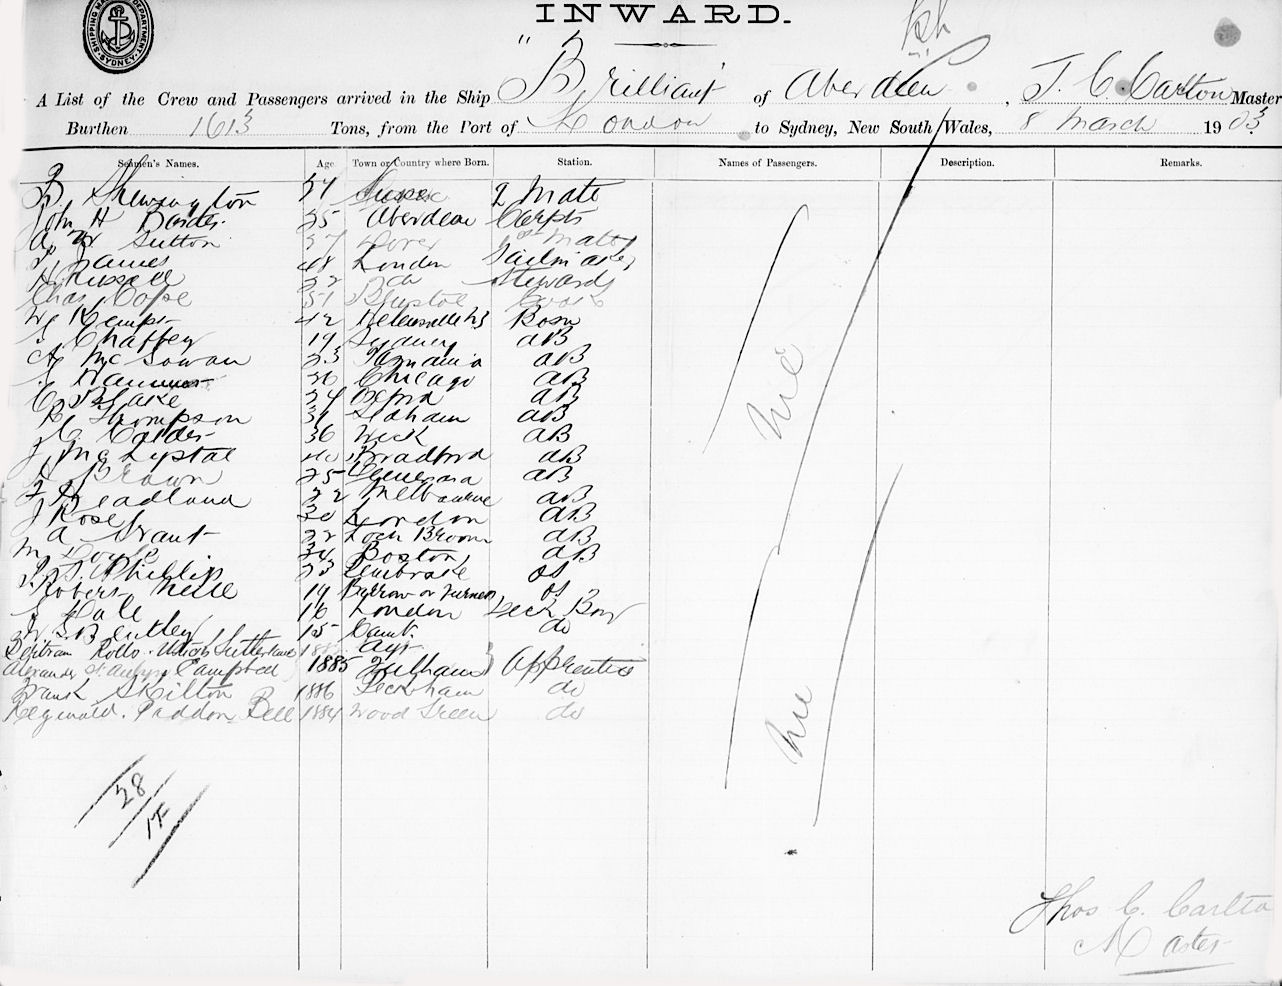 INWARD.
SHIPPING MA DEPARTMENT SYDNEY
A List of the Crew and Passengers arrived in the Ship "Brilliant" of Aberdeen, T. C. Carlton Master
Burthen 1613 Tons, from the Port of London to Sydney, New South Wales, 8 March 1903
Seamen's Names. Age Town or Country where Born. Station. Names of Passengers. Description. Remarks.
24 2 Mate
John H 25 Aberdeen Carptr
Sutton 37 Dover 1st Mate
James 48 London Sailmaker
H Russell 32 do Steward
Chas Cope 51 Bristol Cook
Kemp 42 Bosn
Chaffey 19 Sydney AB
23 Tasmania AB
26 Chicago AB
C Blake 24 Oxford AB
Thompson 31 Oldham AB
Calder 36 Wick AB
40 Bradford AB
Brown 25 AB
Headland 22 Melbourne AB
J Rose 30 London AB
A Grant 22 Loch Broom AB
M Doyle 24 Boston AB
Phillip 23 Pembroke OS
Robert Neill 19 Barrow on Furness OS
Hale 16 London Deck Boy
Bentley 15 Camb. do
Bertram Rollo Sutherland Ayr
Alexander St Aubyn Campbell 1885 Fulham } Apprentice
Frank Skilton 1886 Peckham do
Reginald Paddon Bell 1884 Wood Green do
Nil
Nil
28
Thos C. Carlton
Master